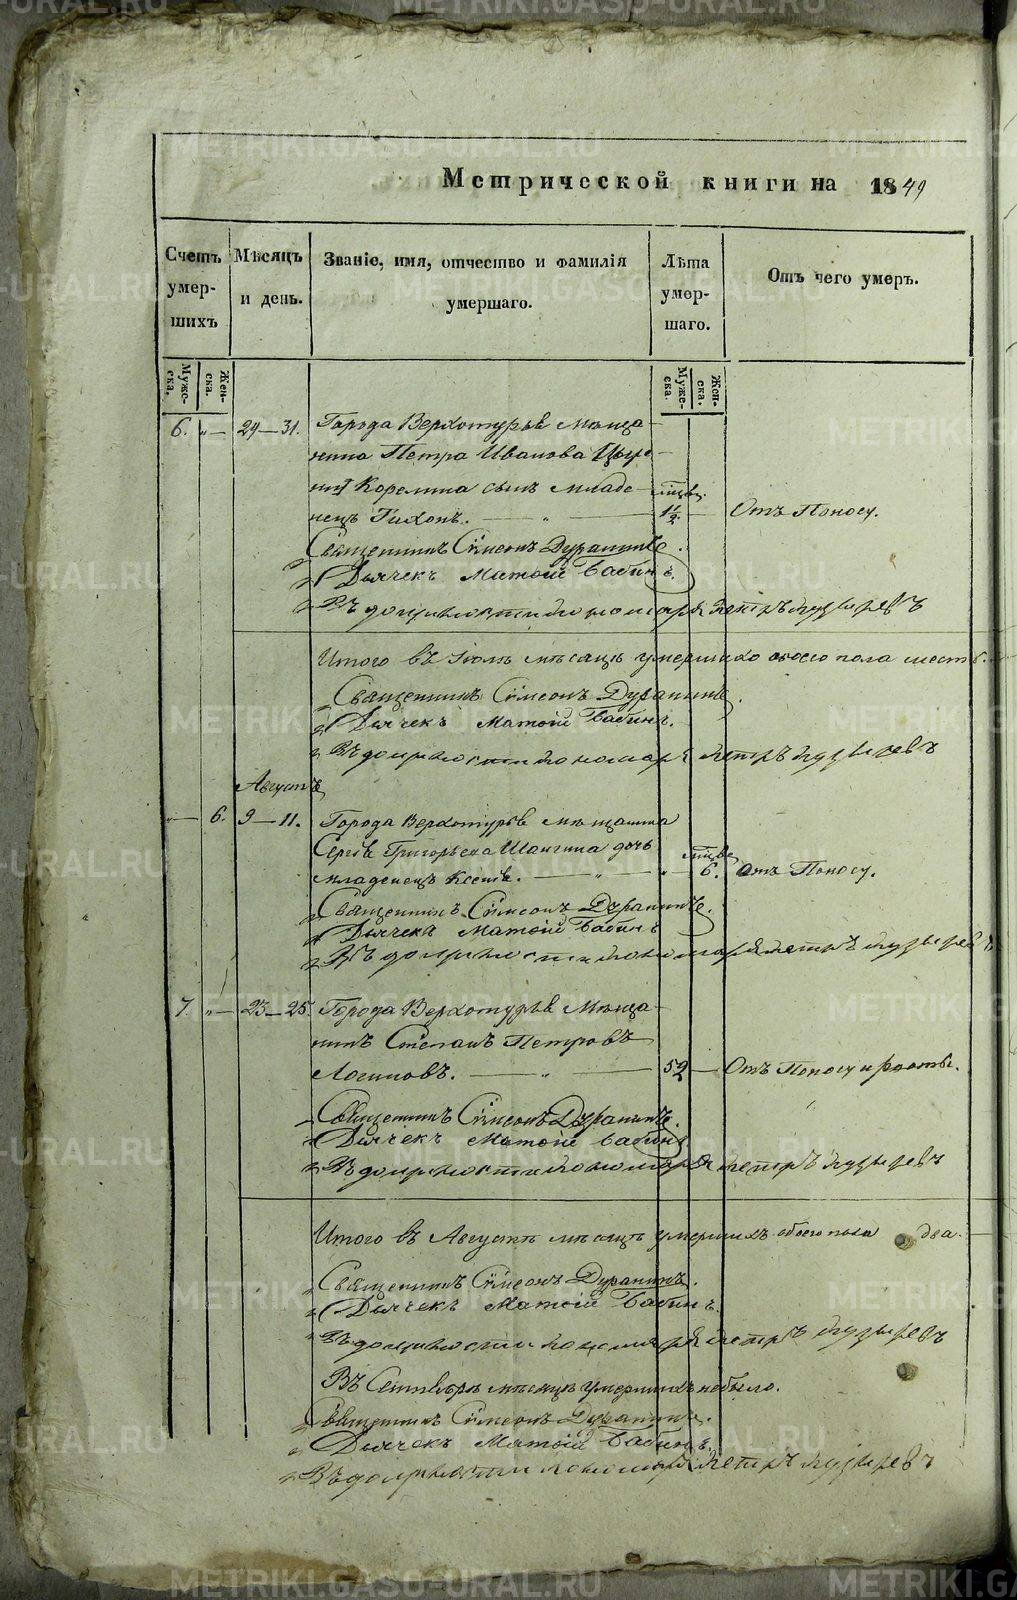 Метрической книги на 1849
Счетъ умершихъ
Мѣсяцъ и день.
Званіе, имя, отчество и фамилія умершаго.
Лѣта умершаго.
Отъ чего умеръ.
Мужеска.
Женска.
Мужеска.
Женска.
6. „— 29—31. Города Верхотурья Мѣща-
нина Петра Иванова
Корелина сынъ младе-
нецъ Тихонъ. — „ — 1½. — Отъ Поносу.
Священникъ Сѵмеонъ Дуранинъ.
Дьячекъ Матѳій Бабинъ.
Въ должности пономаря Петръ Пузыревъ
Итого въ Іюлѣ мѣсяцѣ умершихъ обоего пола шесть.
Священникъ Сѵмеонъ Дуранинъ.
Дьячекъ Матѳій Бабинъ.
Въ должности пономаря Петръ Пузыревъ
Августъ
„— 6. 9—11. Города Верхотурья мѣщанина
Сергѣя Григорьева Шангина дочь
младенецъ Ксенія. — „ — „ — 6. Отъ Поносу.
Священникъ Сѵмеонъ Дуранинъ.
Дьячекъ Матѳій Бабинъ
Въ должности пономаря Петръ Пузыревъ
7. „— 23—25. Города Верхотурья Мѣща-
нинъ Степанъ Петровъ
Логиновъ. — „ — 52 — Отъ Поносу и рвоты.
Священникъ Сѵмеонъ Дуранинъ.
Дьячекъ Матѳій Бабинъ
Въ должности пономаря Петръ Пузыревъ
Итого въ Августѣ мѣсяцѣ умершихъ обоего пола два.
Священникъ Сѵмеонъ Дуранинъ.
Дьячекъ Матѳій Бабинъ.
Въ должности пономаря Петръ Пузыревъ
Въ Сентябрѣ мѣсяцѣ умершихъ небыло.
Священникъ Сѵмеонъ Дуранинъ.
Дьячекъ Матѳій Бабинъ.
Въ должности пономаря Петръ Пузыревъ
METRIKI.GASO-URAL.RU